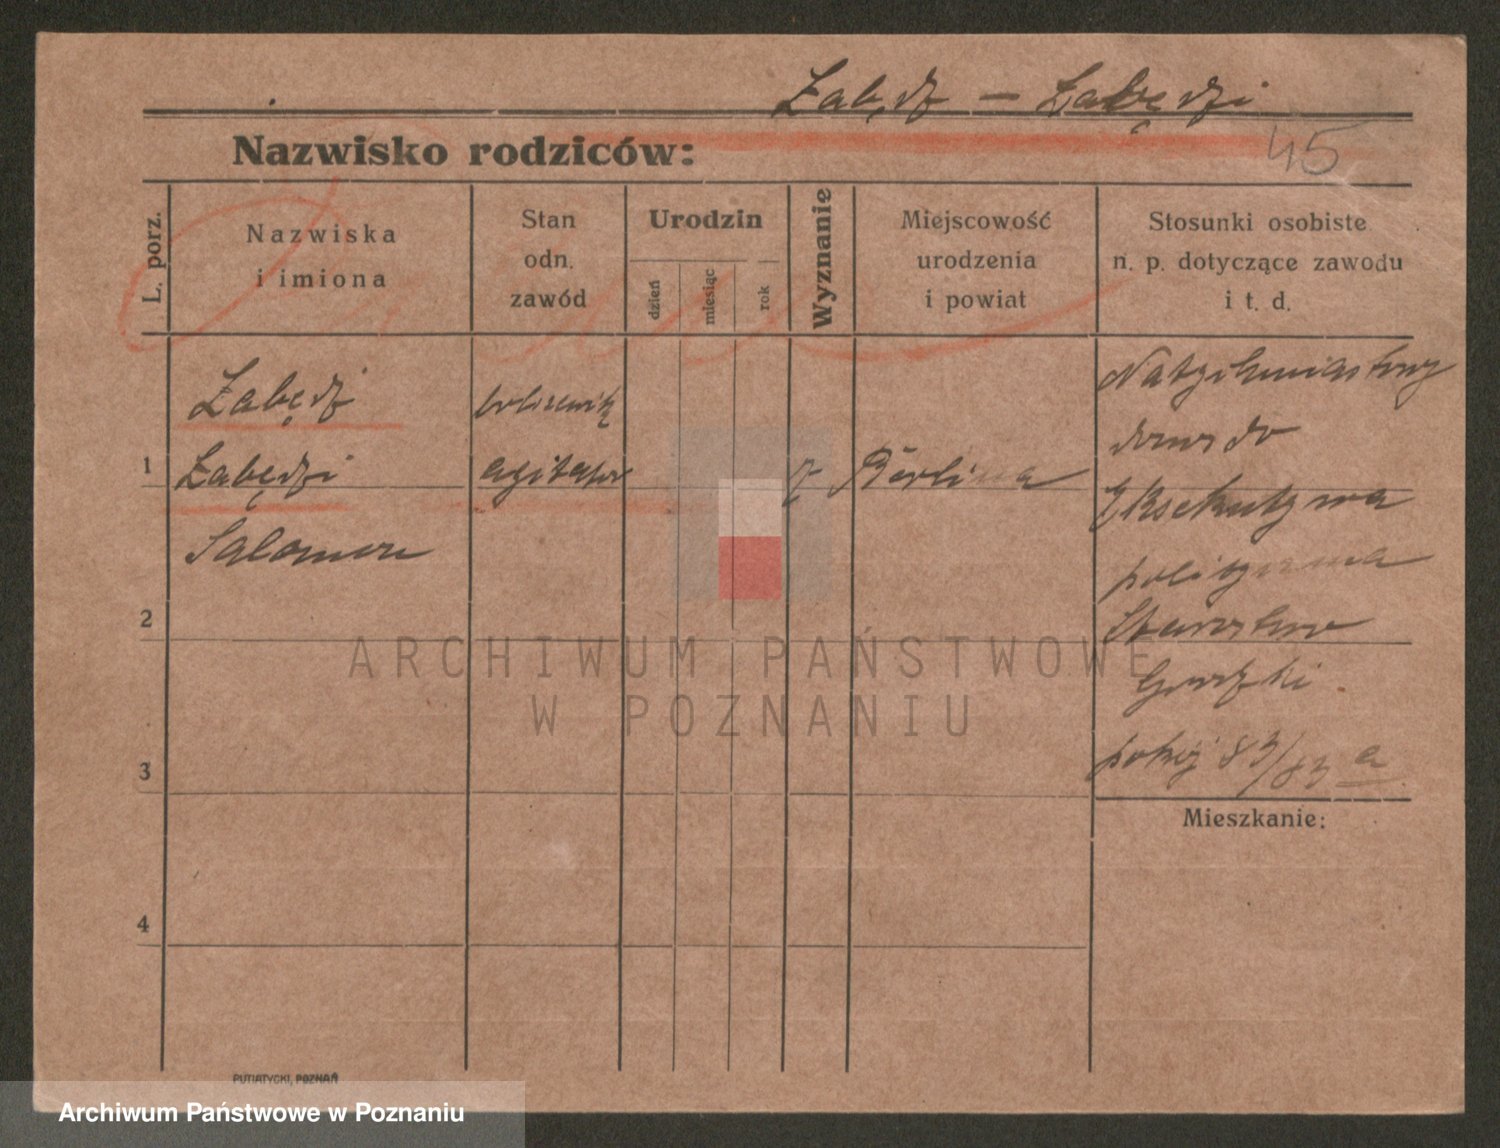 Łabędź — Łabędzi
Nazwisko rodziców:
45
L. porz.
Nazwiska
i imiona
Stan
odn.
zawód
Urodzin
dzień
miesiąc
rok
Wyznanie
Miejscowość
urodzenia
i powiat
Stosunki osobiste
n. p. dotyczące zawodu
i t. d.
1
Łabędź
Łabędzi
Salomon
bolszewik
agitator
z Berlina
Natychmiastowy
do
Ekzekutywa
polityczna
Starostwo
Grodzki
pokój 83/83 a
2
3
4
Mieszkanie:
PUTIATYCKI, POZNAŃ
ARCHIWUM PAŃSTWOWE
W POZNANIU
Archiwum Państwowe w Poznaniu